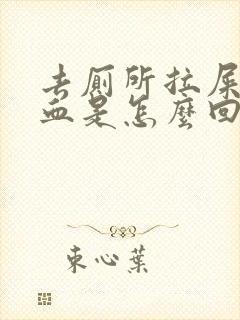 去廁所拉屎
血是怎麼回
束心葉